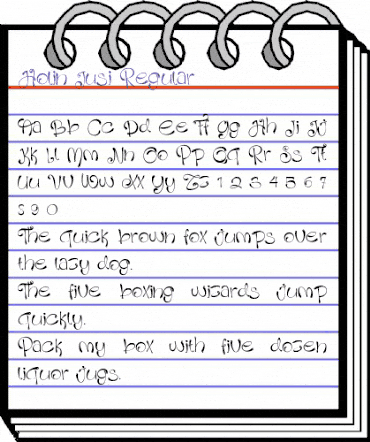 Holin Jusi Regular
Aa Bb Cc Dd Ee Ff Gg Hh Ii Jj
Kk Ll Mm Nn Oo Pp Qq Rr Ss Tt
Uu Vv Ww Xx Yy Zz 1 2 3 4 5 6 7
8 9 0
The quick brown fox jumps over
the lazy dog.
The five boxing wizards jump
quickly.
Pack my box with five dozen
liquor jugs.